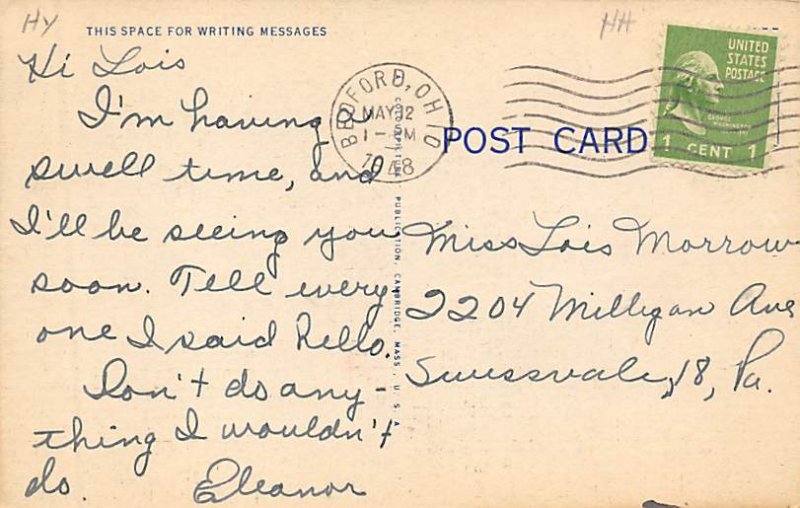 HY
HH
THIS SPACE FOR WRITING MESSAGES
Hi Lois
I'm having a
swell time, and
I'll be seeing you
soon. Tell every
one I said hello.
Don't do any-
thing I wouldn't
do. Eleanor
BEDFORD, OHIO
MAY 12
1948
PUBLICATION, CAMBRIDGE, MASS., U.S.A.
POST CARD
UNITED
STATES
POSTAGE
GEORGE
WASHINGTON
1 CENT 1
Miss Lois Morrow
2204 Milligan Ave
Swissvale, 18, Pa.